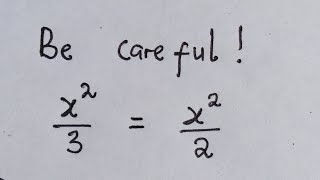 Be careful!
x²/3 = x²/2